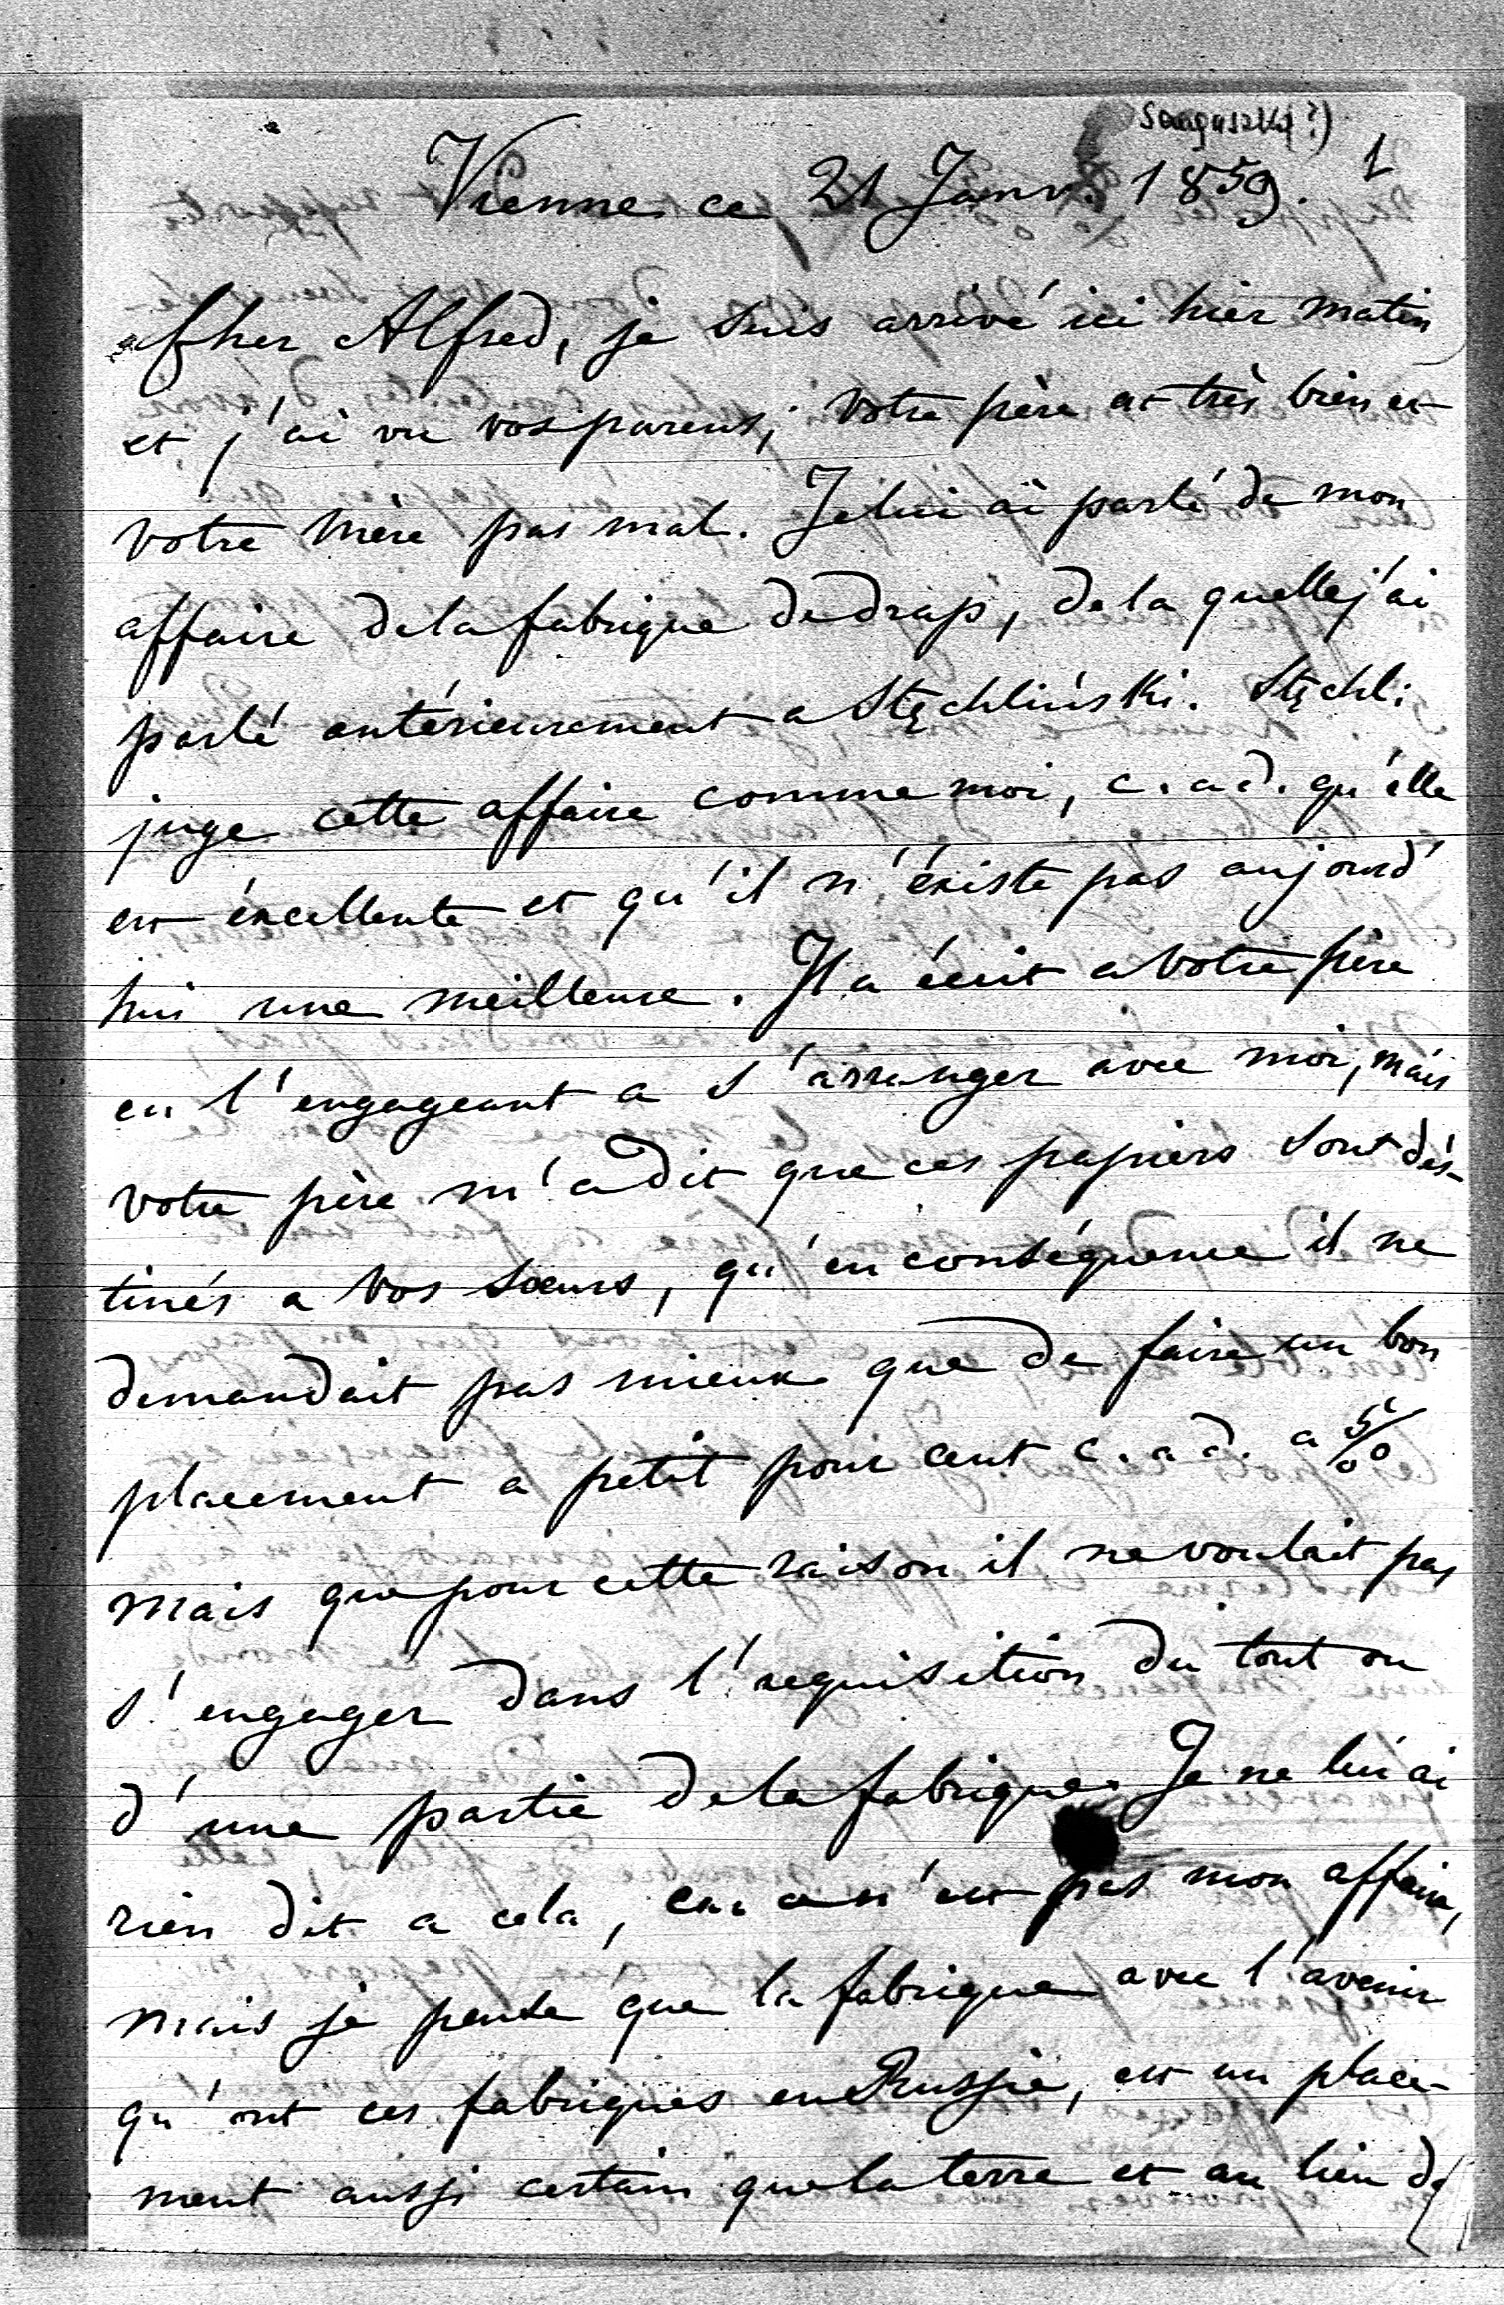 Sanguszko(?)
1
Vienne ce 21 Janv. 1859.
Cher Alfred, je suis arrivé ici hier matin
et j'ai vu vos parens, votre père est très bien et
votre mère pas mal. Je lui ai parlé de mon
affaire de la fabrique de drap, de la quelle j'ai
parlé antérieurement a Stęchliński. Stęchl:
juge cette affaire comme moi, c.a d. qu'elle
est éxcellente et qu'il n'éxiste pas aujourd'
hui une meilleure. Il a écrit a votre père
en l'engageant a s'arranger avec moi, mais
votre père m'a dit que ces papiers sont dés-
tinés a vos sœurs, qu'en conséquence il ne
demandait pas mieux que de faire un bon
placement a petit pour cent c.a d. a 5%
mais que pour cette raison il ne voulait pas
s'engager dans l'aequisition du tout ou
d'une partie de la fabrique. Je ne lui ai
rien dit a cela, car ce n'est pas mon affaire,
mais je pense que la fabrique avec l'avenir
qu'ont ces fabriques en Russie, est un place-
ment aussi certain que la terre et au lieu de